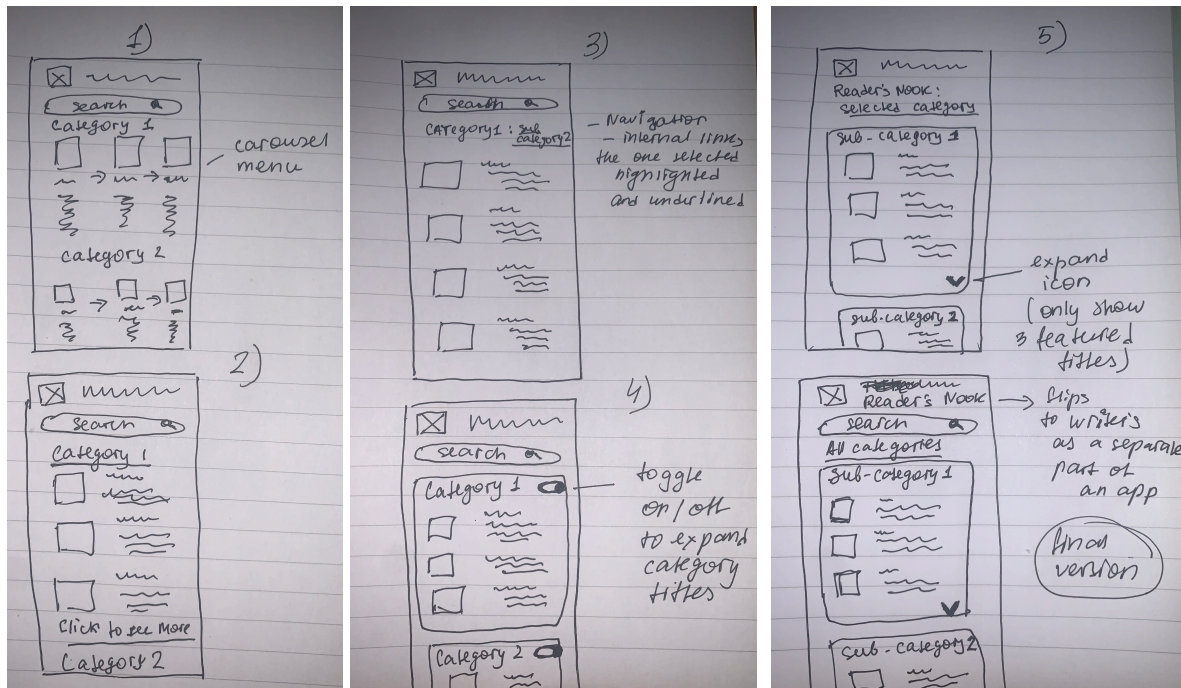 1)
search
Category 1
carousel
menu
category 2
2)
search
Category 1
Click to see More
Category 2
3)
search
CATegory1 : sub
category2
– Navigation
– internal links,
the one selected
highlighted
and underlined
4)
search
Category 1
toggle
on/off
to expand
category
titles
Category 2
5)
Reader's Nook:
selected category
sub-category 1
expand
icon
(only show
3 featured
titles)
sub-category 2
Reader's Nook
flips
to writer's
as a separate
part of
an app
search
All categories
Sub-category 1
final
version
Sub-category 2